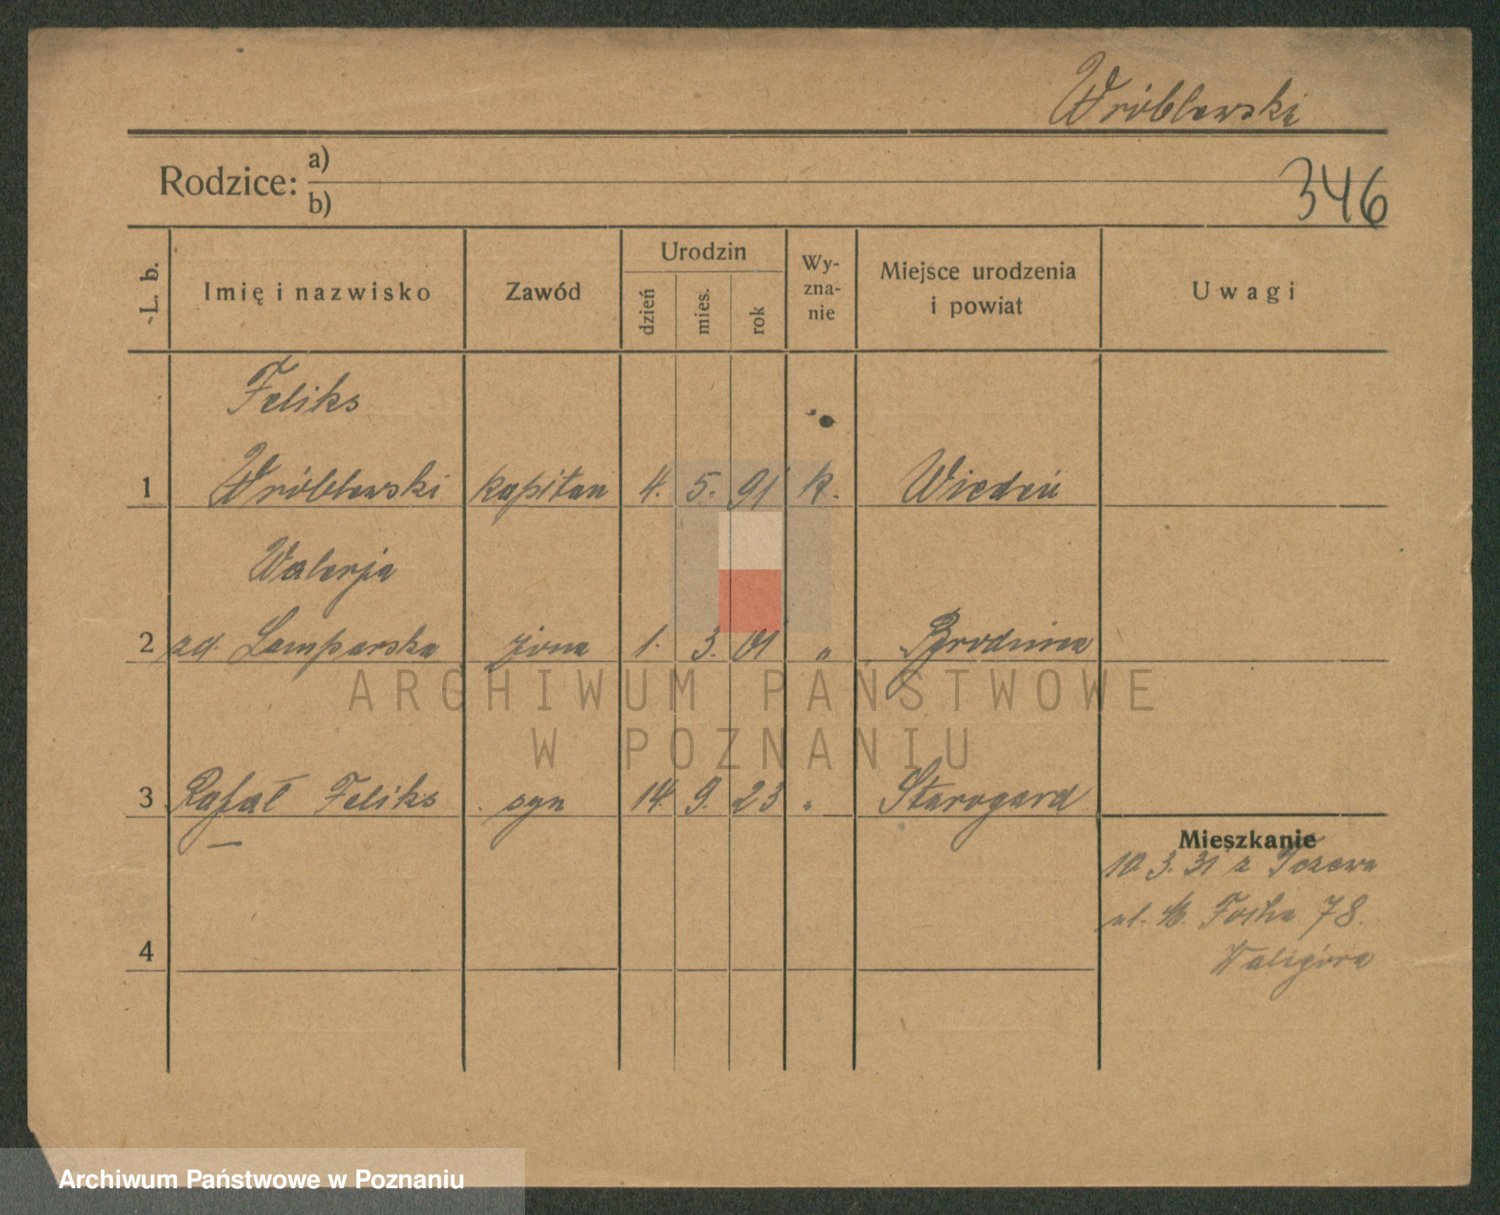 Wróblewski
Rodzice: a)
b)
346
L. b.
Imię i nazwisko
Zawód
Urodzin
dzień
mies.
rok
Wy-
zna-
nie
Miejsce urodzenia
i powiat
Uwagi
Feliks
1 Wróblewski kapitan 4. 5. 91 k. Wiedeń
Walerja
2 zd. Lamparska żona 1. 3. 01 " Brodnica
3 Rafał Feliks syn 14. 9. 23 " Starogard
Mieszkanie
10. 3. 31 z Tczewa
ul. M. Focha 78.
Waligóra
4
ARCHIWUM PAŃSTWOWE
W POZNANIU
Archiwum Państwowe w Poznaniu